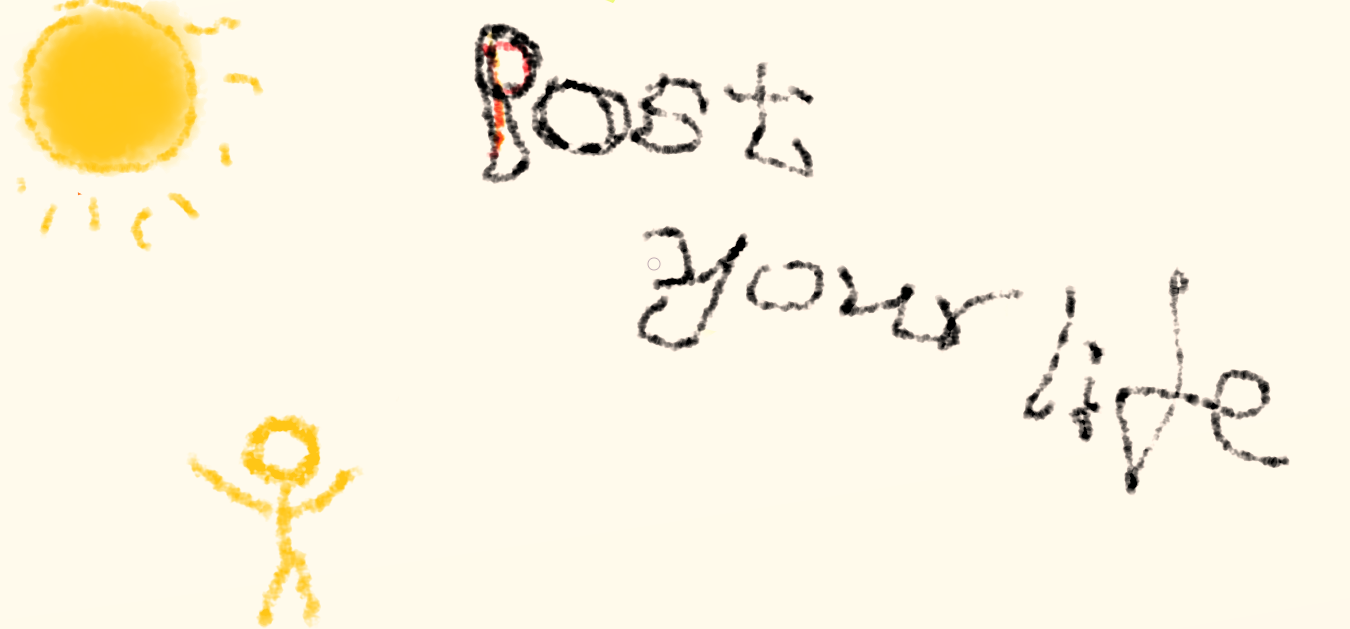 Post
your
life